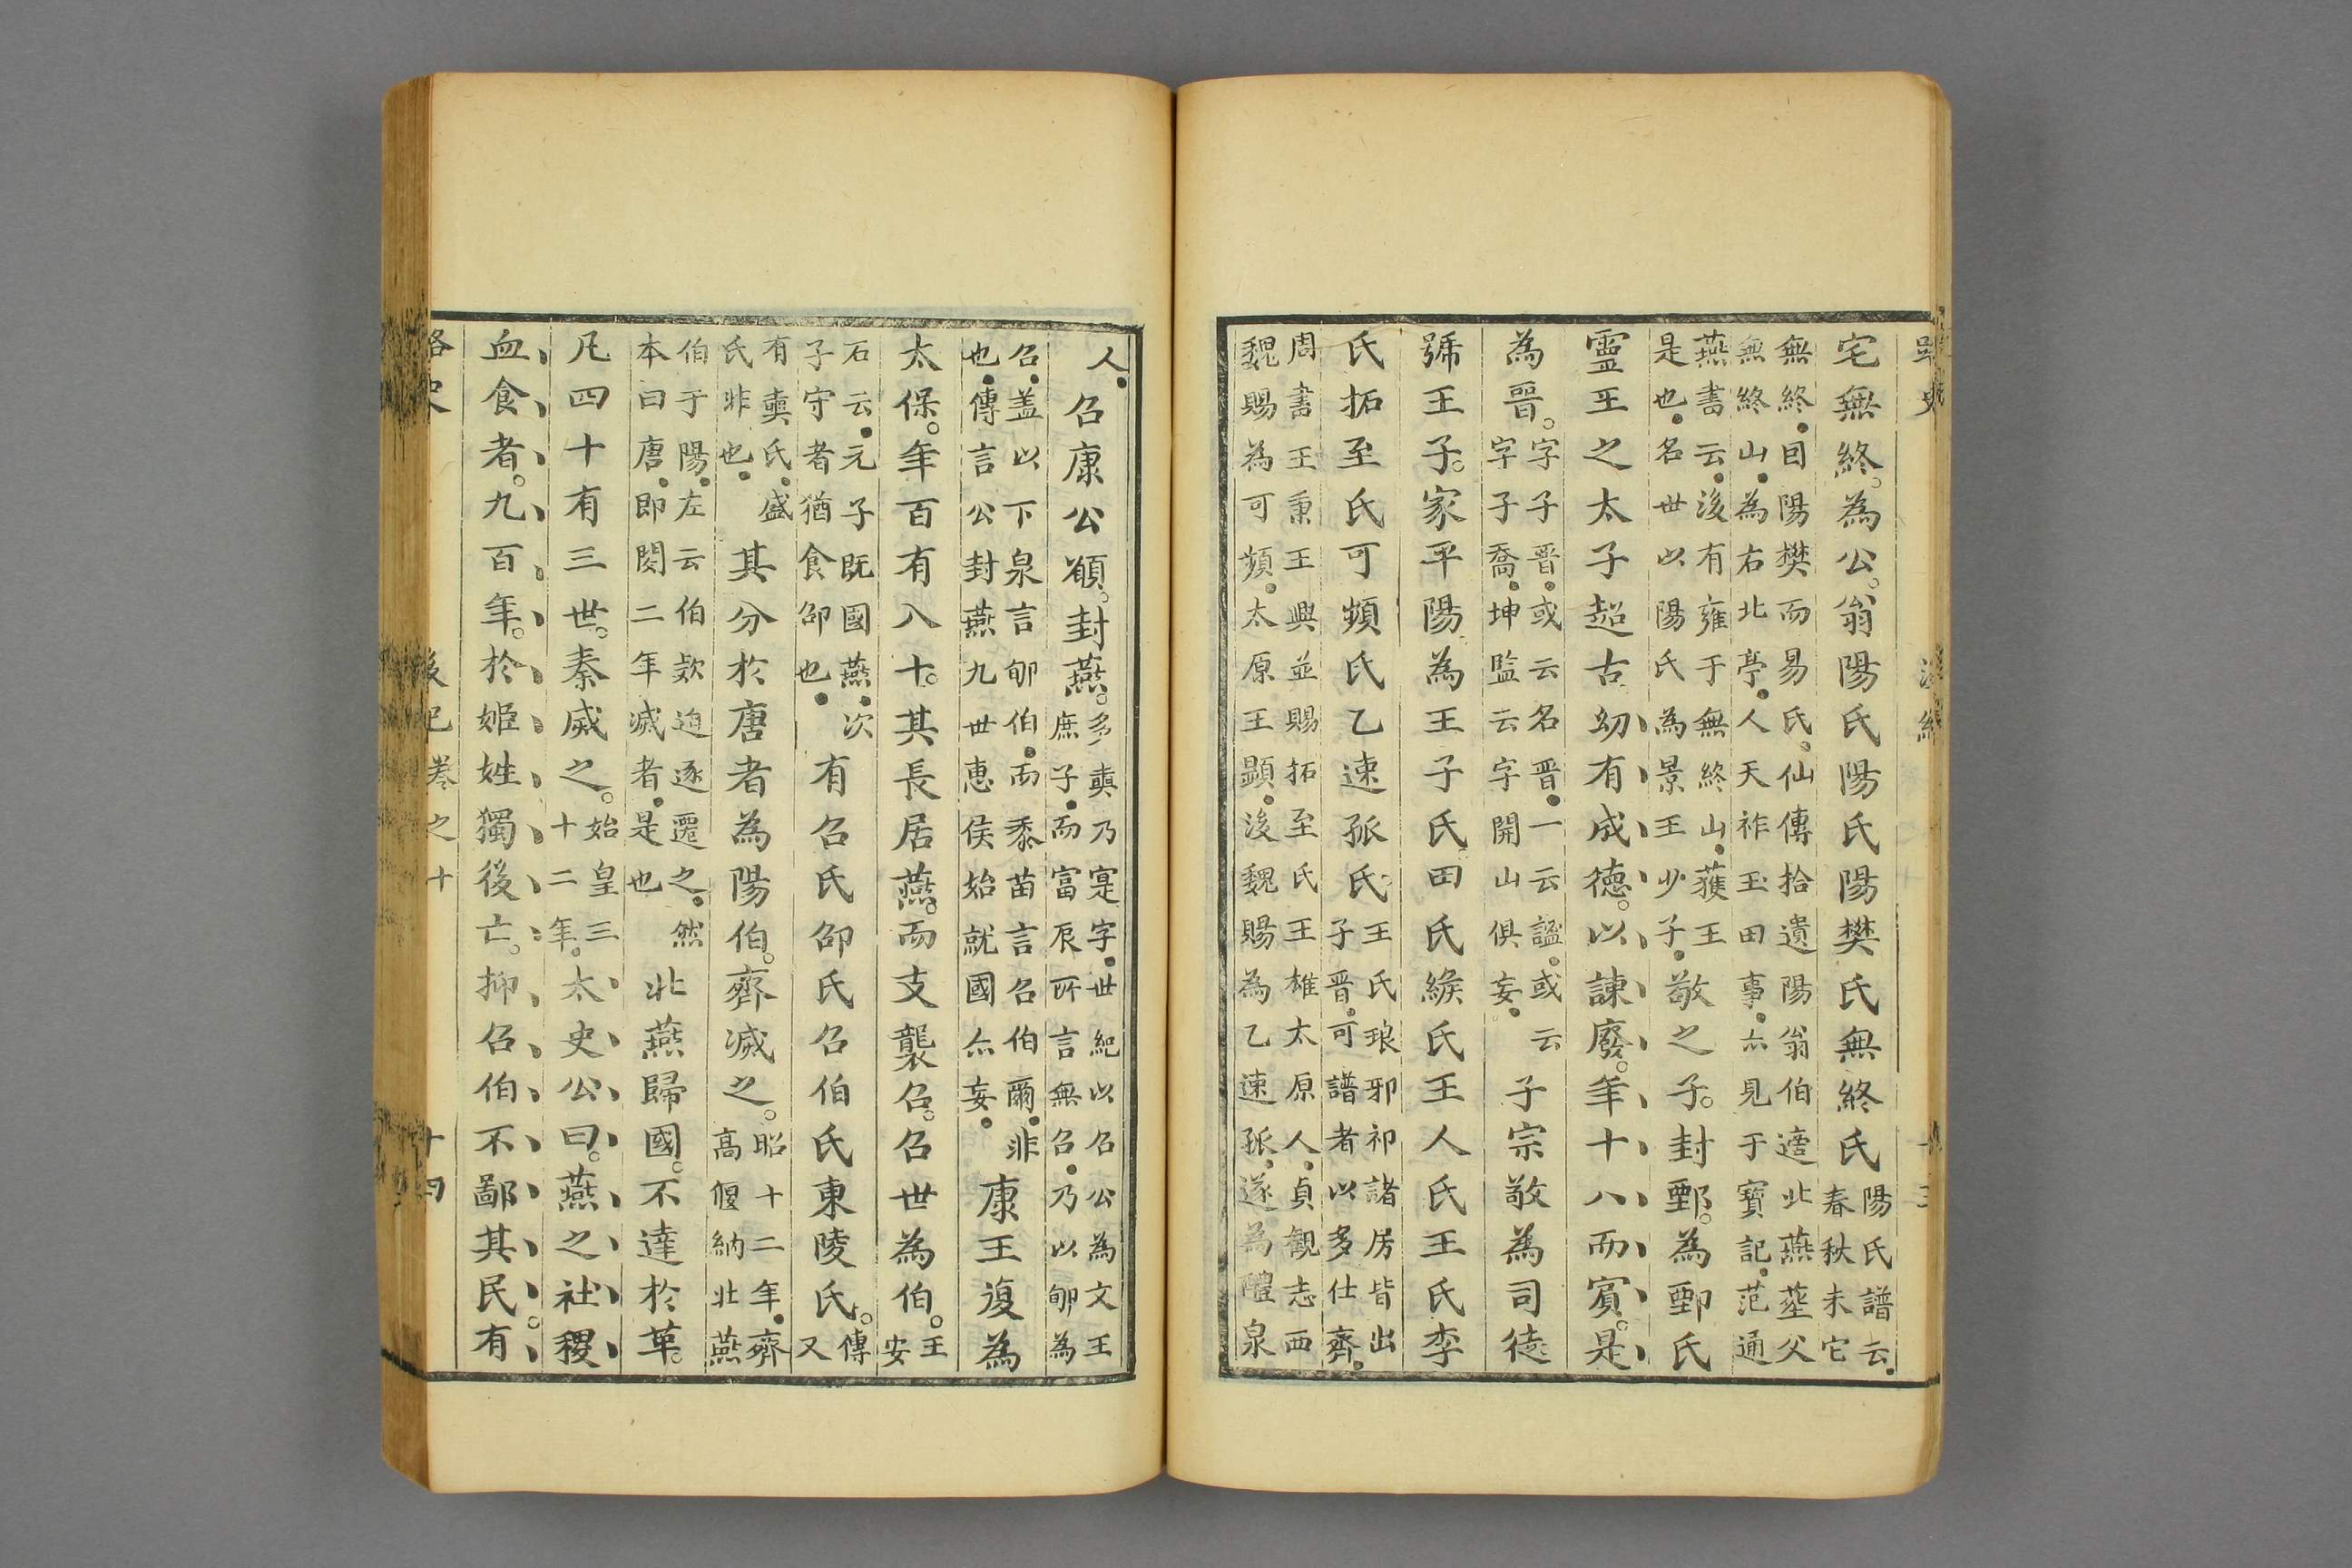 宅無終。為公。翁陽氏陽氏陽樊氏無終氏陽氏譜云春秋末它
無終目陽樊而易氏仙傳拾遺陽翁伯適北燕葬父
無終山為右北亭人天祚玉田事亦見于寶記范通
燕書云後有雍于無終山獲王
是也名世以陽氏為景王少子敬之子。封鄄。為鄄氏
靈王之太子超古幼有成德。以諫廢。年十八而賓。是
為晉。字子晉或云名晉一云謚或云
字子喬坤監云字開山俱妄子宗敬為司徒
號王子。家平陽。為王子氏田氏緱氏王人氏王氏李
氏拓至氏可頻氏乙速孤氏王氏琅邪祁諸房皆出
子晉可譜者以多仕齊
周書王秉王興並賜拓至氏王雄太原人貞觀志西
魏賜為可頻太原王顯後魏賜為乙速孤遂為醴泉
人召康公頿。封燕。多奭乃寔字世紀以召公為文王
庶子而富辰所言無召乃以郇為
召盖以下泉言郇伯而黍苗言召伯爾非
也傳言公封燕九世惠侯始就國亦妄康王復為
太保。年百有八十。其長居燕。而支襲召。召世為伯。王安
石云元子既國燕次
子守者猶食邵也有召氏邵氏召伯氏東陵氏。傳又
有奭氏盛
氏非也其分於唐者為陽伯。齊滅之。昭十二年齊
高偃納北燕
伯于陽左云伯款迫逐遷之然
本曰唐即閔二年滅者是也北燕歸國。不達於革。
凡四十有三世。秦烕之。始皇三
十二年太史公曰。燕之社稷
血食者。九百年。於姬姓獨後亡。抑召伯不鄙其民。有
路史
後紀卷之十
十四